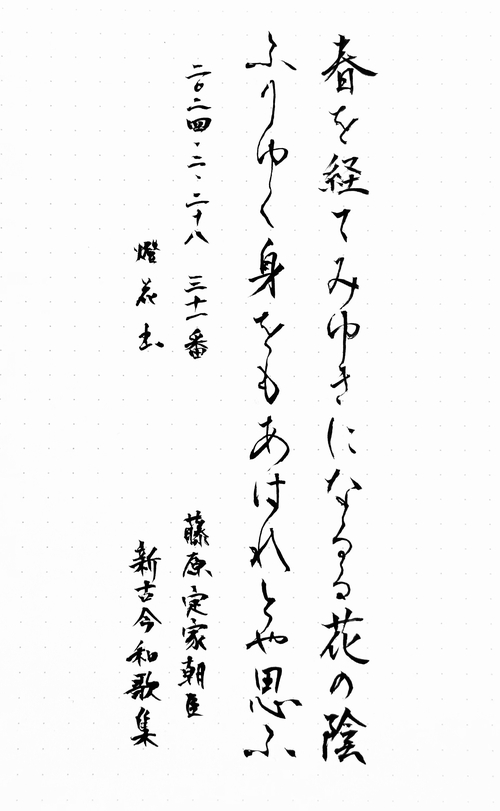 春を経てみゆきになるる花の陰
ふりゆく身をもあはれとや思ふ
二〇二四、二、二十八 三十一番
藤原定家朝臣
燈花書
新古今和歌集